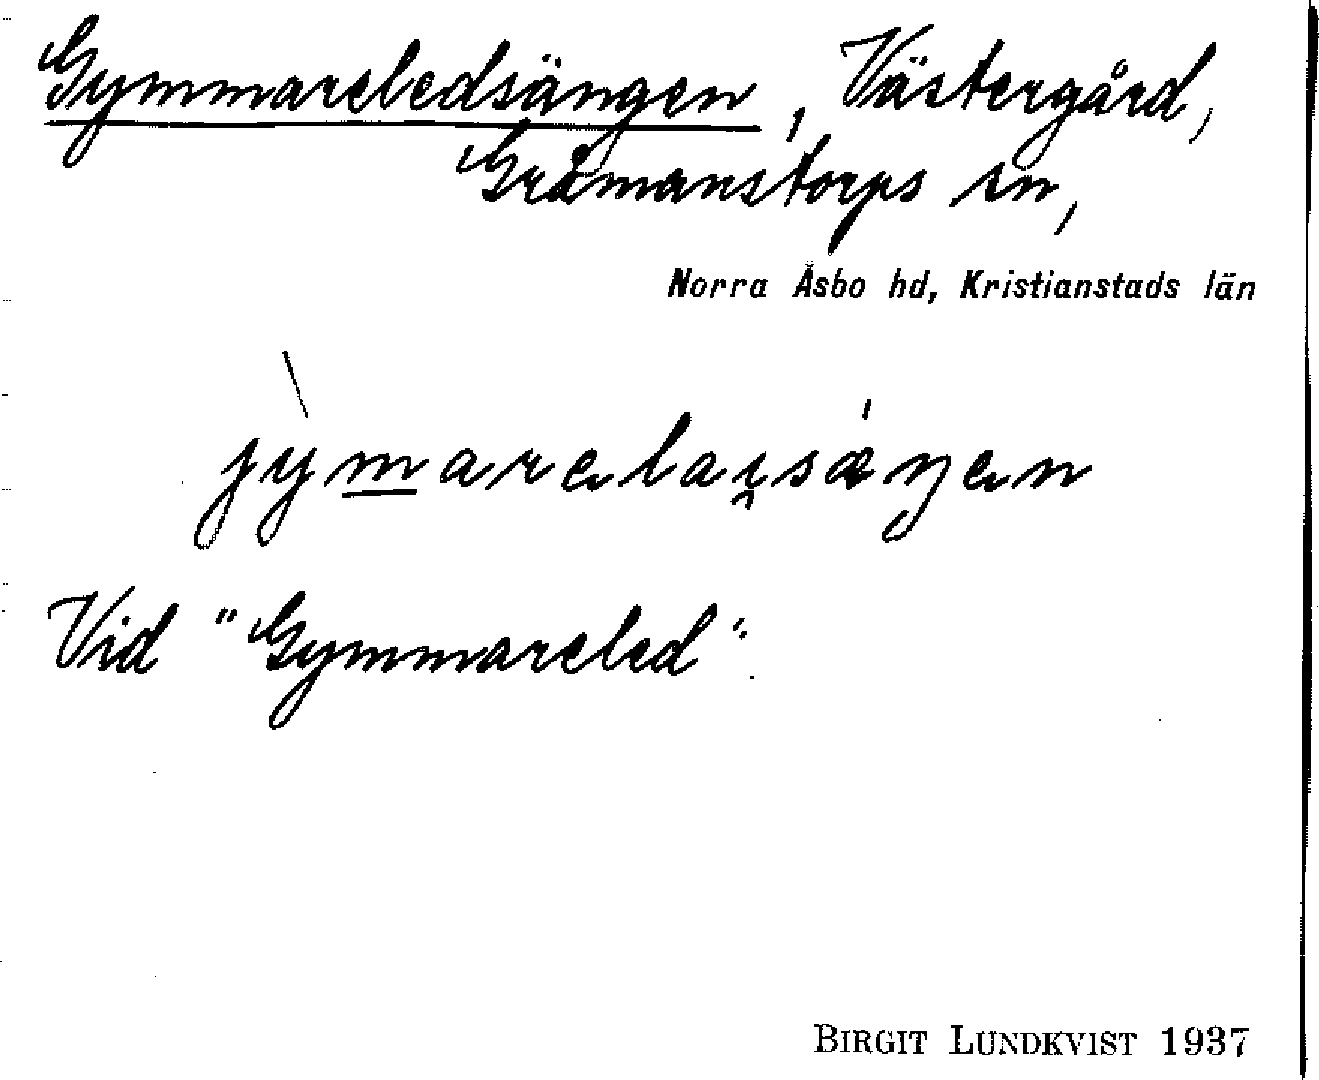 Gymmareledsängen, Västergård,
Gråmanstorps sn,
Norra Åsbo hd, Kristianstads län
jỳmarəlai̯sǽŋən
Vid "Gymmareled".
BIRGIT LUNDKVIST 1937